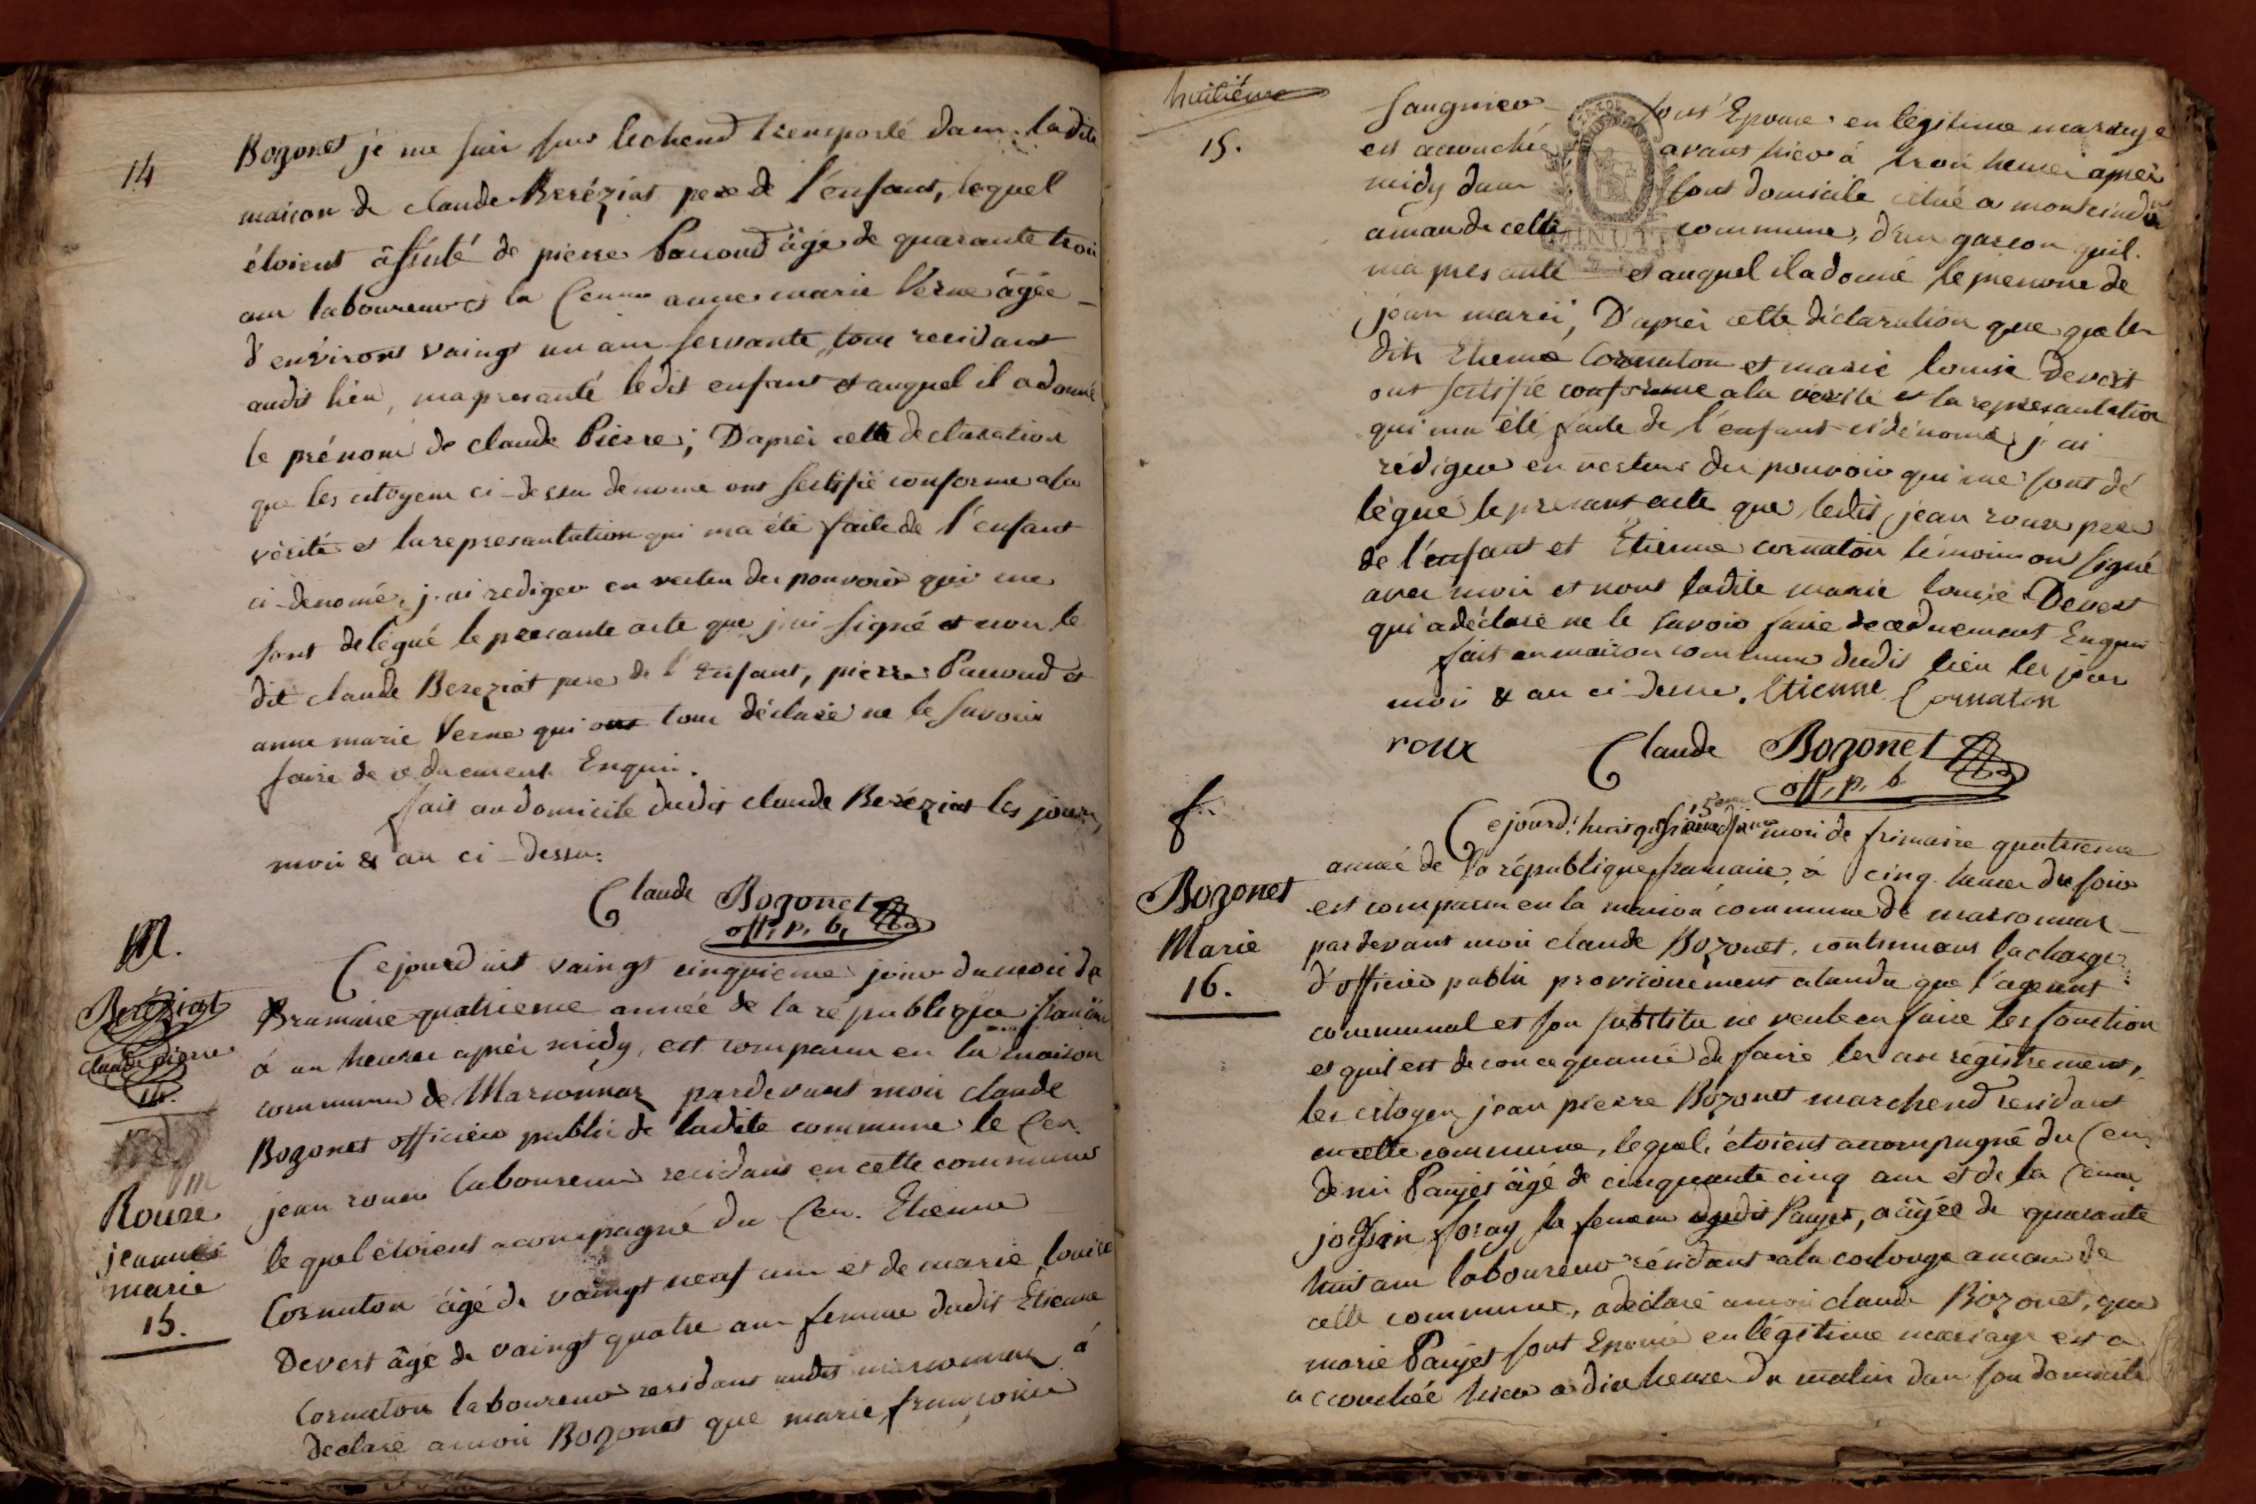 14
Bozonet je me suis sur lechend trensporté dans ladite
maison de claude Beréziat pere de l'enfant, lequel
étoient âssisté de pierre Pauvoud âgé de quarante trois
ans laboureur et la Cenne anne marie Verne âgée
d'environt vaingt un ans servante, tous residant
audit lieu, ma presanté ledit enfant et auquel il a donné
le prénom de claude Pierre; D'après cette declaration
que les citoyens ci-dessu denomé ont sertifié conforme a la
vérité et la represantation qui ma été faite de l'enfant
ci-denomé, j'ai rediger en vertu des pouvoir qui me
sont delégué le presante acte que j'ai signé et non le
dit claude Bereziat pere de l'enfant, pierre Pauvoud et
anne marie Verne qui ont tous déclaré ne le savoir
faire de ce duement Enquis.
fait au domicile dudit claude Beréziat les jour,
mois & an ci-dessu.
Claude Bozonet
off. p. b.
M.
Beréziat
claude pierre
14.
Cejourd'uit vaingt cinquieme jour du mois de
Brumaire quatrieme année de la république francaise
à un heures après midy, est comparu en la maison
commune de Marsonnaz pardevant moi claude
Bozonet officier public de ladite commune le Cen.
jean roux laboureur residant en cette commune
le quel étoient acompagné du Cen. Etienne
Cornaton âgé de vaingt neuf ans et de marie louise
Devert âgé de vaingt quatre ans femme dudit Étienne
Cornaton laboureur residant audit marsonnaz à
declaré a moi Bozonet que marie françoise
m
Roux
jeanues
marie
15.
huitième
15.
Saugnier sont Epouse en légitime mariage
est acouchée avant hier à trois heures après
midy dans sont domicile citué a montcindu
amau de cette commune, d'un garcon quil
ma presanté et auquel il a donné le prenom de
jean marié; D'après cette déclaration que que les
dits Etienne Cornaton et marie louise Devert
ont sertifié conforme a la vérité et la represantation
qui ma été faite de l'enfant ci dénomé, j'ai
rédiger en vertue des pouvoir qui me sont dé
légué le presant acte que ledit jean roux pere
de l'enfant et Etienne cornaton témoin on signé
avec moi et nont ladite marie louise Devert
qui a déclaré ne le savoir faire de ce duement Enquis
fait en maison commune dudit lieu les jour
mois & an ci-dessu. Etienne Cornaton
roux Claude Bozonet
off. p. b
f.
Bozonet
Marie
16.
Cejourd'huit mois de frimaire quatrieme
année de la république francaise, à cinq heures du soir
est comparu en la maison commune de marsonnas
pardevant moi claude Bozonet, continuant la charge
d'officier public provisoirement atandu que l'agent
communal et son substitu ne veule en faire les fonction
et quil est de concequance de faire les anregistrement,
les citoyen jean pierre Bozonet marchend residant
en cette commune, lequel étoient acompagné du Cen.
denis Paujet âgé de cinquante cinq ans et de la Cenne
josephin foray la femme dudit Paujet, aâgée de quarante
huit ans laboureur résidant a la coulouge amau de
cette commune, a declaré a moi claude Bozonet, que
marie Paujet sont Epouse en légitime mariage est a
accouchée hier a dix heures du matin dans son domicile